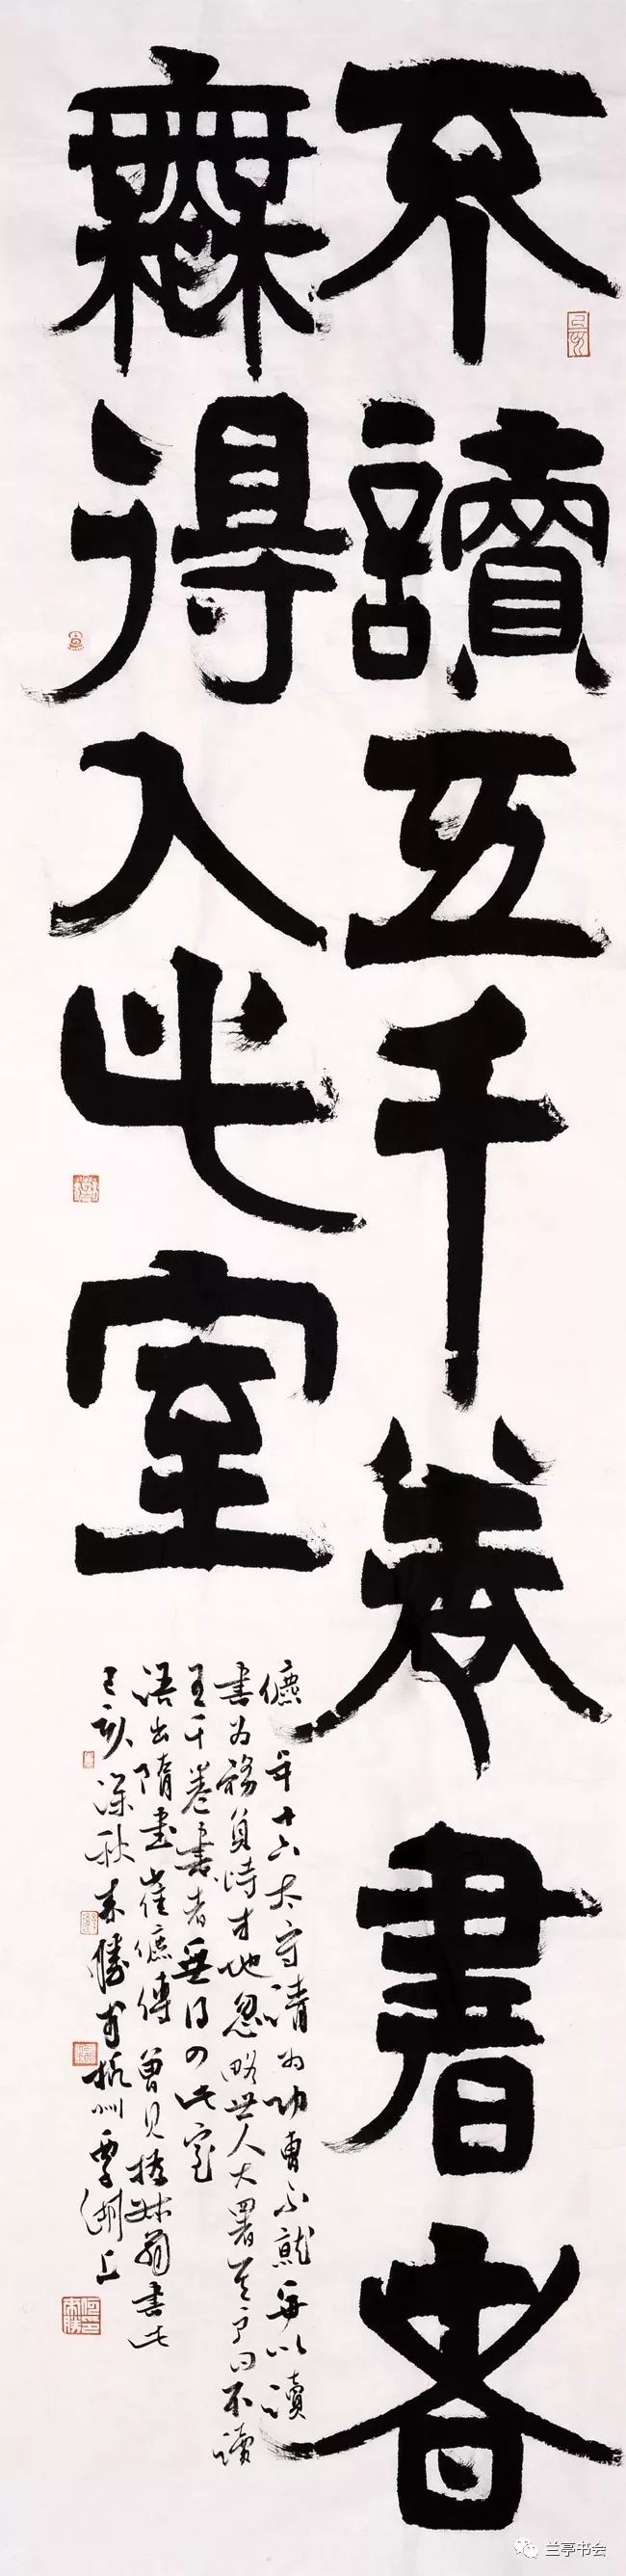 不讀五千卷書者
無得入此室
儦年十六太守請为功曹不就每以讀
書为務負恃才地忽略世人大署其户曰不讀
五千卷書者無得入此室
語出隋書崔儦傳曾見擔翁書此
己亥深秋來勝於杭州西湖上
兰亭书会